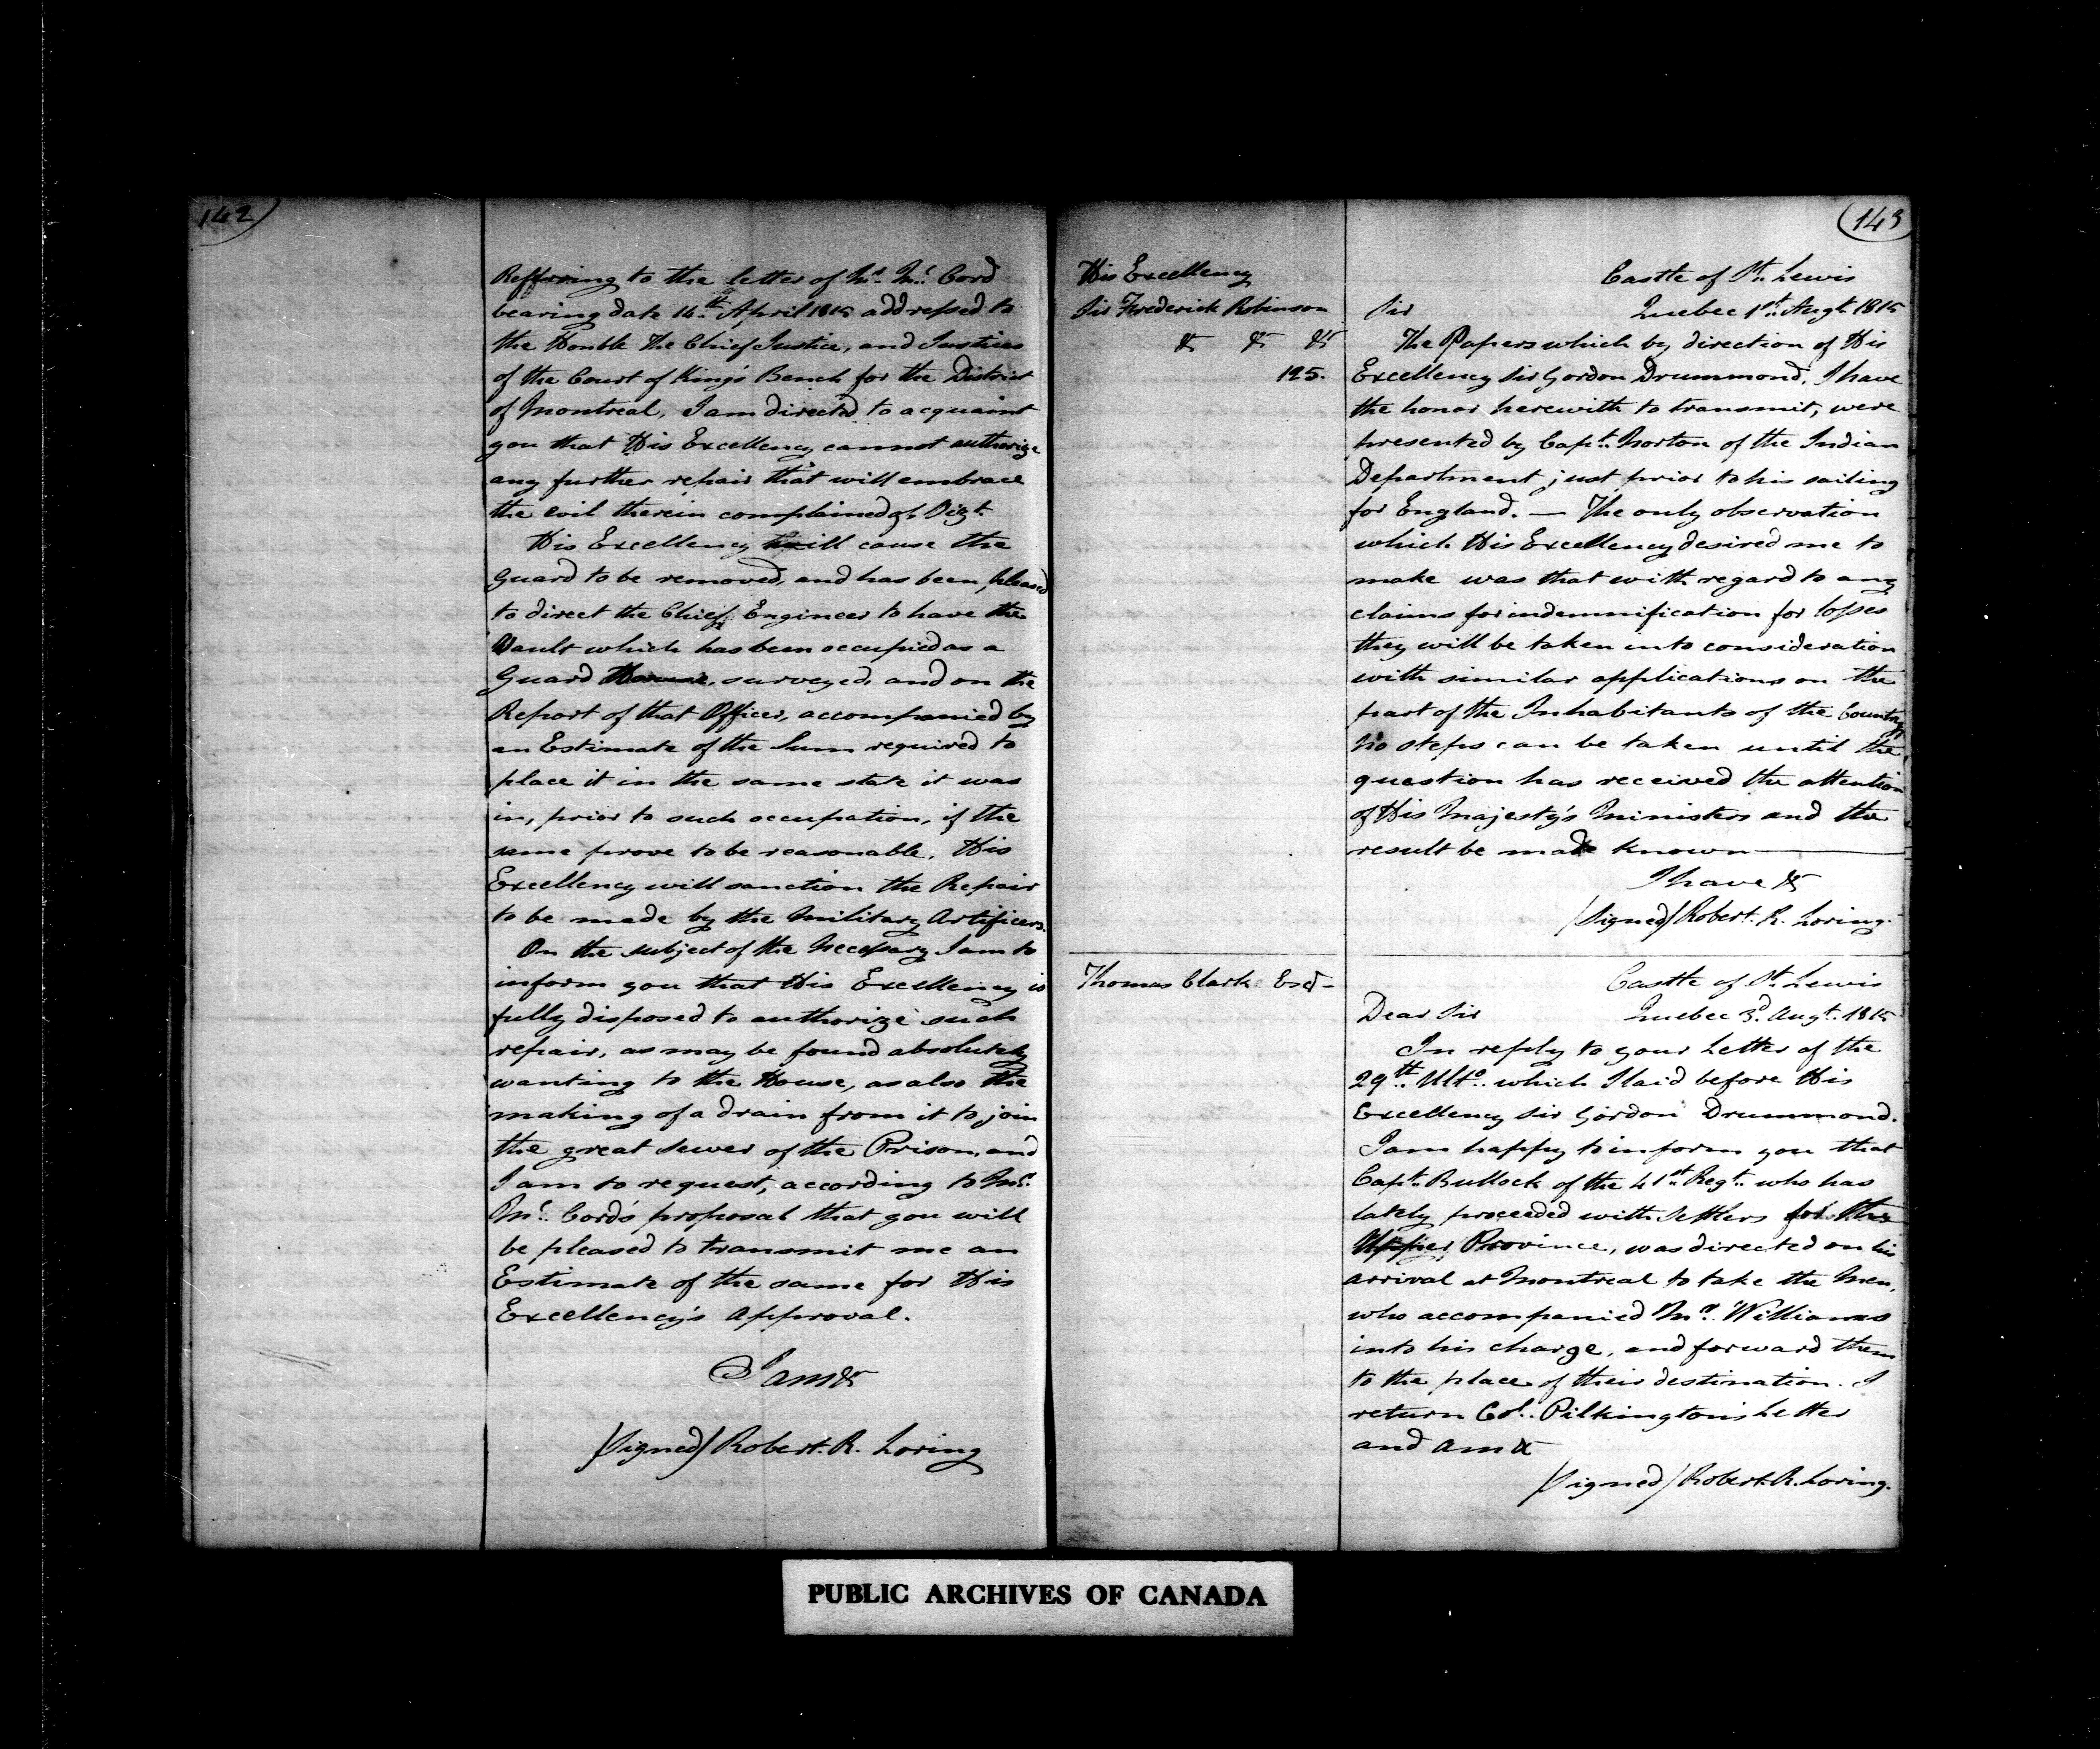 142
Refferring to the letter of Mr. Mc. Cord
bearing date 14th April 1815 addressed to
the Honble The Chief Justice, and Justices
of the Court of King's Bench for the District
of Montreal, I am directed to acquaint
you that His Excellency cannot authorize
any further repair that will embrace
the evil therein complained of, Vizt.
His Excellency will cause the
Guard to be removed, and has been pleased
to direct the Chief Engineer to have the
Vault which has been occupied as a
Guard House, surveyed, and on the
Report of that Officer, accompanied by
an Estimate of the Sum required to
place it in the same state it was
in, prior to such occupation, if the
same prove to be reasonable, His
Excellency will sanction the Repair
to be made by the Military Artificers.
On the subject of the Necessary I am to
inform you that His Excellency is
fully disposed to authorize such
repair, as may be found absolutely
wanting to the House, as also the
making of a drain from it to join
the great sewer of the Prison, and
I am to request, according to Mr.
Mc. Cord's proposal that you will
be pleased to transmit me an
Estimate of the same for His
Excellency's approval.
I am &c
/Signed/ Robert. R. Loring
143
His Excellency
Sir Frederick Robinson
&c &c &c
125.
Castle of St. Lewis
Sir Quebec 1st. Augt. 1815
The Papers which by direction of His
Excellency Sir Gordon Drummond, I have
the honor herewith to transmit, were
presented by Capt. Norton of the Indian
Department just prior to his sailing
for England. — The only observation
which His Excellency desired me to
make was that with regard to any
claims for indemnification for losses
they will be taken into consideration
with similar applications on the
part of the Inhabitants of the Country
No steps can be taken until the
question has received the attention
of His Majesty's Ministers and the
result be made known —
I have &c
/Signed/ Robert. R. Loring.
Thomas Clark Esq—
Castle of St. Lewis
Dear Sir Quebec 3d. Augt. 1815
In reply to your Letter of the
29th. Ulto. which I laid before His
Excellency Sir Gordon Drummond.
I am happy to inform you that
Capt. Bullock of the 41st. Regt. who has
lately proceeded with Settlers for the
Upper Province, was directed on his
arrival at Montreal to take the Men,
who accompanied Mr. Williams
into his charge, and forward them
to the place of their destination. I
return Col. Pilkington's Letter
and am &
/Signed/ Robert R. Loring.
PUBLIC ARCHIVES OF CANADA